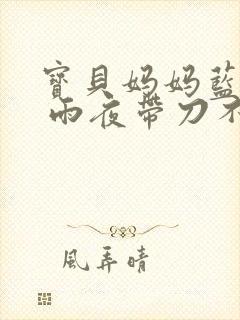 寶貝媽媽藍
雨夜帶刀不
風弄晴